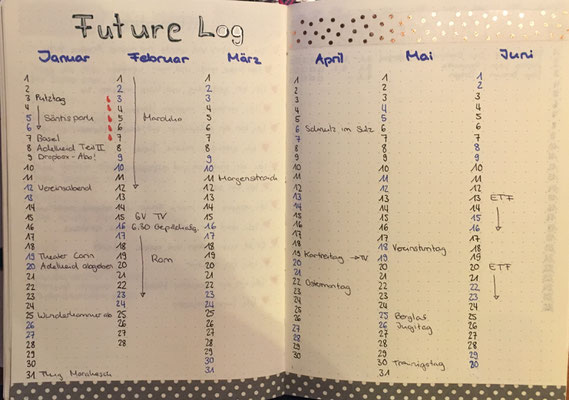 Future Log
Januar
1
2
3 Putztag
4
5 Säntispark
6
7 Basel
8 Adelheid Teil II
9 Dropbox-Abo!
10
11
12 Vereinsabend
13
14
15
16
17
18
19 Theater Corin
20 Adelheid abgeben
21
22
23
24
25 Wunderkammer ab
26
27
28
29
30
31 Flug
Februar
1
2
3
4
5 Marokko
6
7
8
9
10
11
12
13
14
15 GV TV
16 6.30
17
18
19
20 Rom
21
22
23
24
25
26
27
28
März
1
2
3
4
5
6
7
8
9
10
11 Morgenstraich
12
13
14
15
16
17
18
19
20
21
22
23
24
25
26
27
28
29
30
31
April
1
2
3
4
5
6 im
7
8
9
10
11
12
13
14
15
16
17
18
19 Karfreitag → TV
20
21
22 Ostermontag
23
24
25
26
27
28
29
30
Mai
1
2
3
4
5
6
7
8
9
10
11
12
13
14
15
16
17
18
19
20
21
22
23
24
25
26 Jugitag
27
28
29
30
31
Juni
1
2
3
4
5
6
7
8
9
10
11
12
13 ETF
14
15
16
17
18
19
20 ETF
21
22
23
24
25
26
27
28
29
30